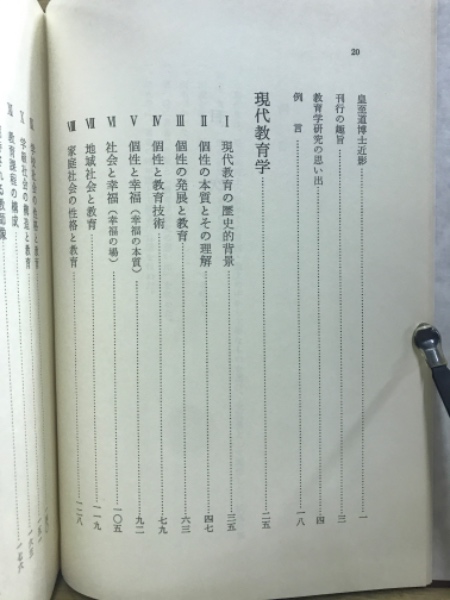 20
皇至道博士近影……一
刊行の趣旨……三
教育学研究の思い出……四
例言……一八
現代教育学……二五
Ⅰ 現代教育の歴史的背景……三五
Ⅱ 個性の本質とその理解……四七
Ⅲ 個性の発展と教育……六三
Ⅳ 個性と教育技術……七九
Ⅴ 個性と幸福（幸福の本質）……九二
Ⅵ 社会と幸福（幸福の場）……一〇五
Ⅶ 地域社会と教育……一一九
Ⅷ 家庭社会の性格と教育……一二八
Ⅸ 学校社会の性格と教育
Ⅹ 学級社会の構造と教育
Ⅺ 教育課程の構成